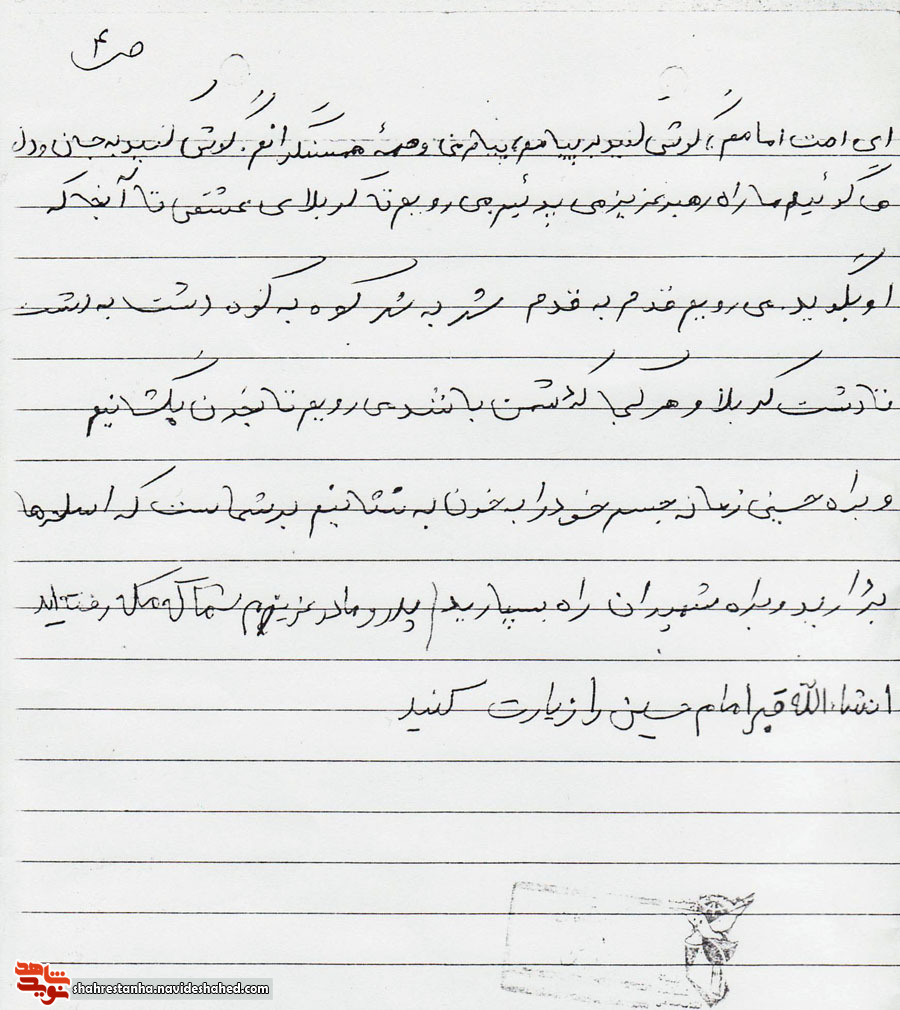 ص ۴
ای امت امامم، گوش کنید به پیامم، پیام من و همهٔ همسنگرانم. گوش کنید به جان و دل
می گوئیم ما راه رهبر عزیز می پوئیم می رویم تا کربلای عشق تا آنجا که
او بگوید. می رویم قدم به قدم شهر به شهر کوه به کوه دشت به دشت
تا دشت کربلا و هر کجا که دشمن باشد می رویم تا بخون بکشانیم
و براه حسین زمان جسم خود را به خون به نشانیم بر شماست که اسلحه ها
بردارید و براه شهیدان راه بسپارید پدر و مادر عزیزم شما که مکه رفته اید
انشاءالله قبر امام حسین را زیارت کنید
نوید شاهد
shahrestanha.navideshahed.com